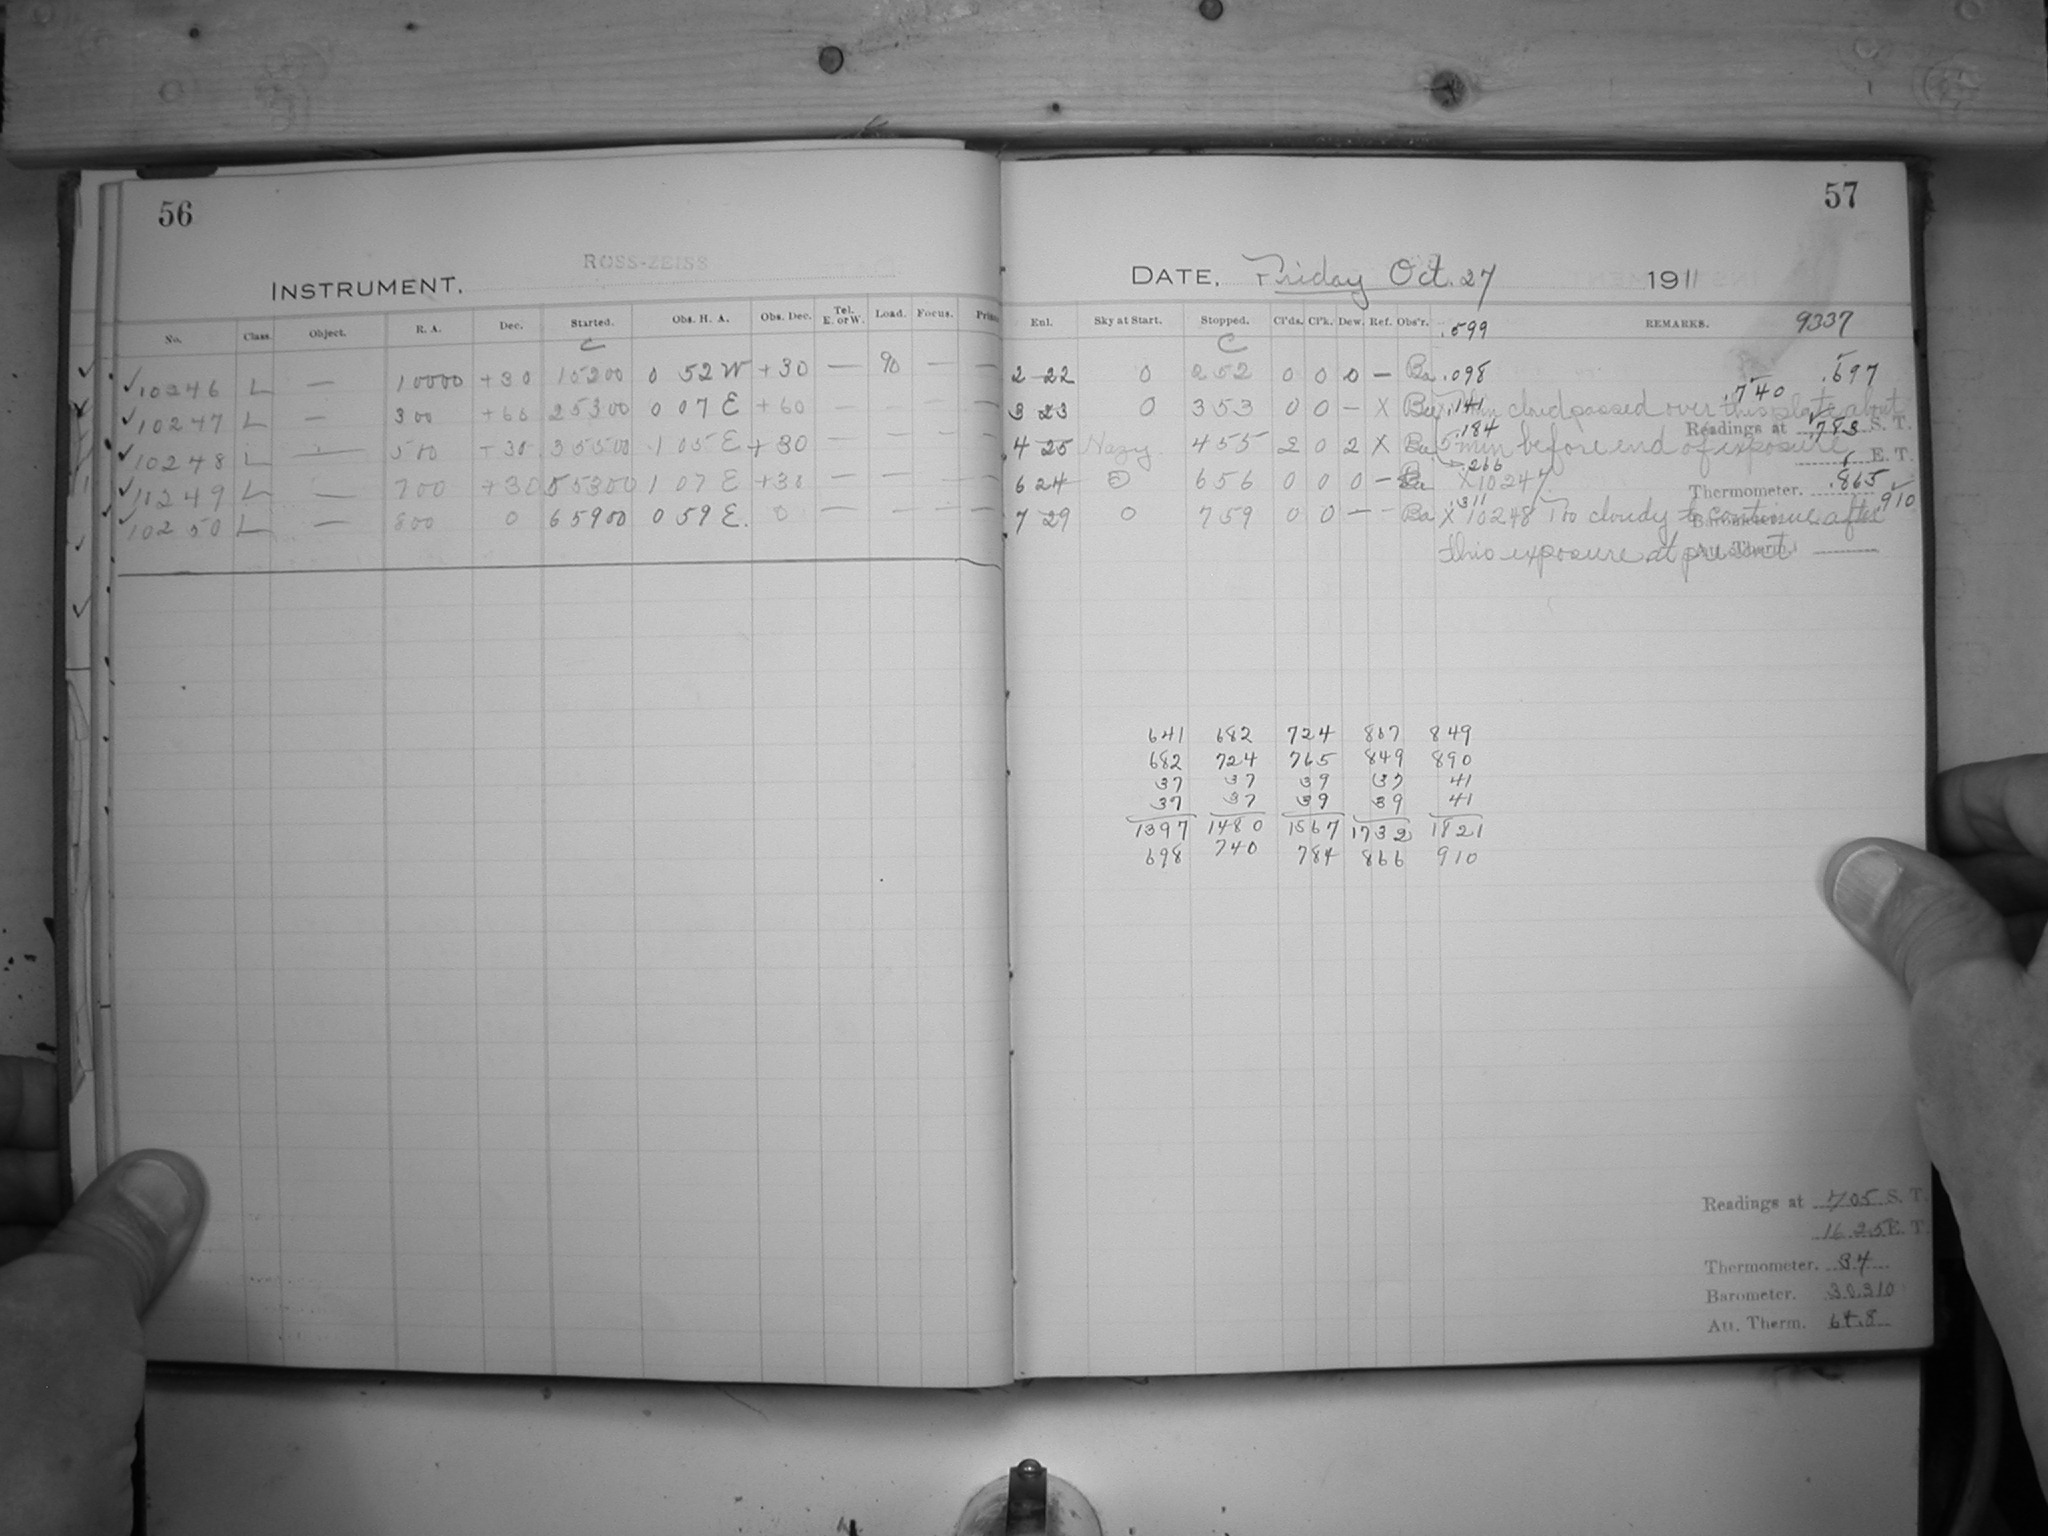 56
ROSS-ZEISS
INSTRUMENT.
No. Class. Object. R. A. Dec. Started. Obs. H. A. Obs. Dec. Tel. E. or W. Load. Focus.
C
10246 L — 10000 +30 15200 0 52 W +30 — 90 — —
10247 L — 300 +60 25300 0 07 E +60 — — — —
10248 L — 500 +30 35500 1 05 E +30 — — — —
11249 L — 700 +30 55300 1 07 E +30 — — — —
10250 L — 800 0 65900 0 59 E. 0 — — — —
57
DATE. Friday Oct. 27 1911
Enl. Sky at Start. Stopped. Cl'ds. Cl'k. Dew. Ref. Obs'r. .599 REMARKS. 9337
C
2 22 0 252 0 0 0 — Ba .098 .697
.740
3 23 0 353 0 0 — X Ba .141 cloud passed over this plate about
.184 Readings at .783 S. T.
4 25 Hazy 455 2 0 2 X Ba 5 min before end of exposure
.266 E. T.
6 24 0 656 0 0 0 — Ba X 10247
Thermometer. .865
.311 .910
7 29 0 759 0 0 — — Ba X 10248 Too cloudy to continue after
this exposure at present
Att. Therm.
641 682 724 807 849
682 724 765 849 890
37 37 39 37 41
37 37 39 39 41
1397 1480 1567 1732 1821
698 740 784 866 910
Readings at 705 S. T.
16 25 E. T.
Thermometer. 34
Barometer. 30.310
Att. Therm. 64.8